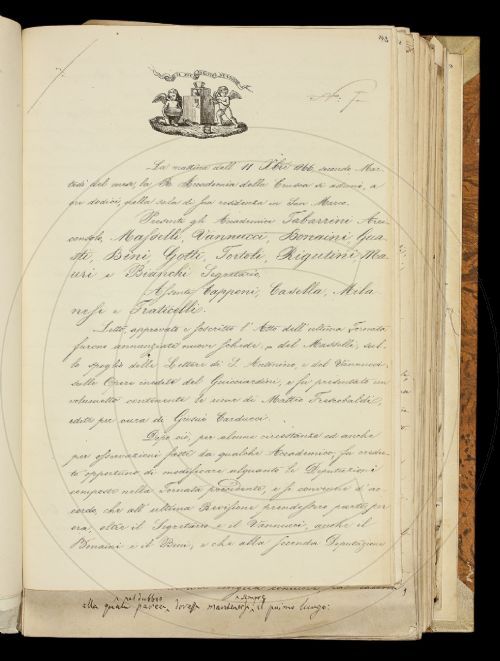 La mattina dell' 11 Xbre 1866, secondo Mar-
tedì del mese, la R. Accademia della Crusca si adunò, a
ore dodici, nella sala di sua residenza in San Marco.
Presenti gli Accademici Tabarrini Arci-
consolo, Masselli, Vannucci, Bonaini, Gua-
sti, Bini, Gotti, Tortoli, Rigutini, Ma-
uri e Bianchi Segretario.
Assenti Capponi, Casella, Mila-
nesi e Fraticelli.
Letto, approvato e soscritto l'Atto dell'ultima Tornata,
furono annunziate nuove schede, e del Masselli, sul-
lo spoglio delle Lettere di S. Antonino, e del Vannucci,
sulle Opere inedite del Guicciardini, e fu presentato un
volumetto contenente le rime di Matteo Frescobaldi,
edite per cura di Giosuè Carducci.
Dopo ciò, per alcune circostanze ed anche
per osservazioni fatte da qualche Accademico, fu credu-
to opportuno di modificare alquanto le Deputazioni
composte nella Tornata precedente, e si convenne d'ac-
cordo, che all'ultima Revisione prendessero parte, per
ora, oltre il Segretario e il Vannucci, anche il
Bonaini e il Bini, e che alla seconda Deputazione
alla quale pareva dovesse mantenersi il primo luogo: